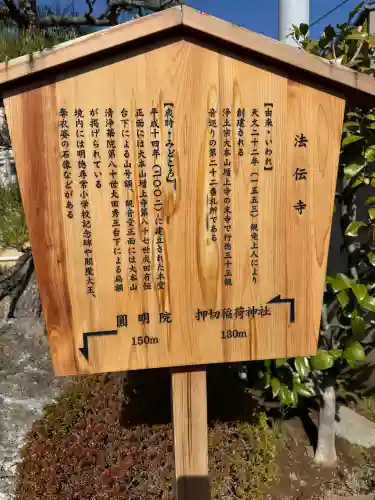 法伝寺
【由来・いわれ】
天文二十二年(一五五三)観竜上人により
創建される
浄土宗大本山増上寺の末寺で行徳三十三観
音巡りの第二十二番札所である
【歳時・みどころ】
平成十四年(二〇〇二)に改築された本堂
正面には大本山増上寺第八十七世成田有恒
台下による山号額、観音堂正面には大本山
清浄華院第八十世大田秀三台下による扁額
が掲げられている
境内には明徳尋常小学校記念碑や閻魔大王、
奪衣婆の石像などがある
圓明院
150m
押切稲荷神社
130m